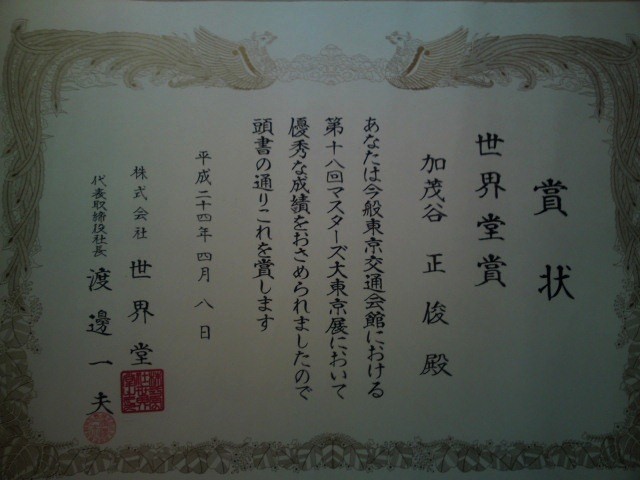 賞状
世界堂賞
加茂谷 正俊 殿
あなたは今般東京交通会館における
第十八回マスターズ大東京展において
優秀な成績をおさめられましたので
頭書の通りこれを賞します
平成二十四年四月八日
株式会社 世界堂
代表取締役社長 渡邊一夫